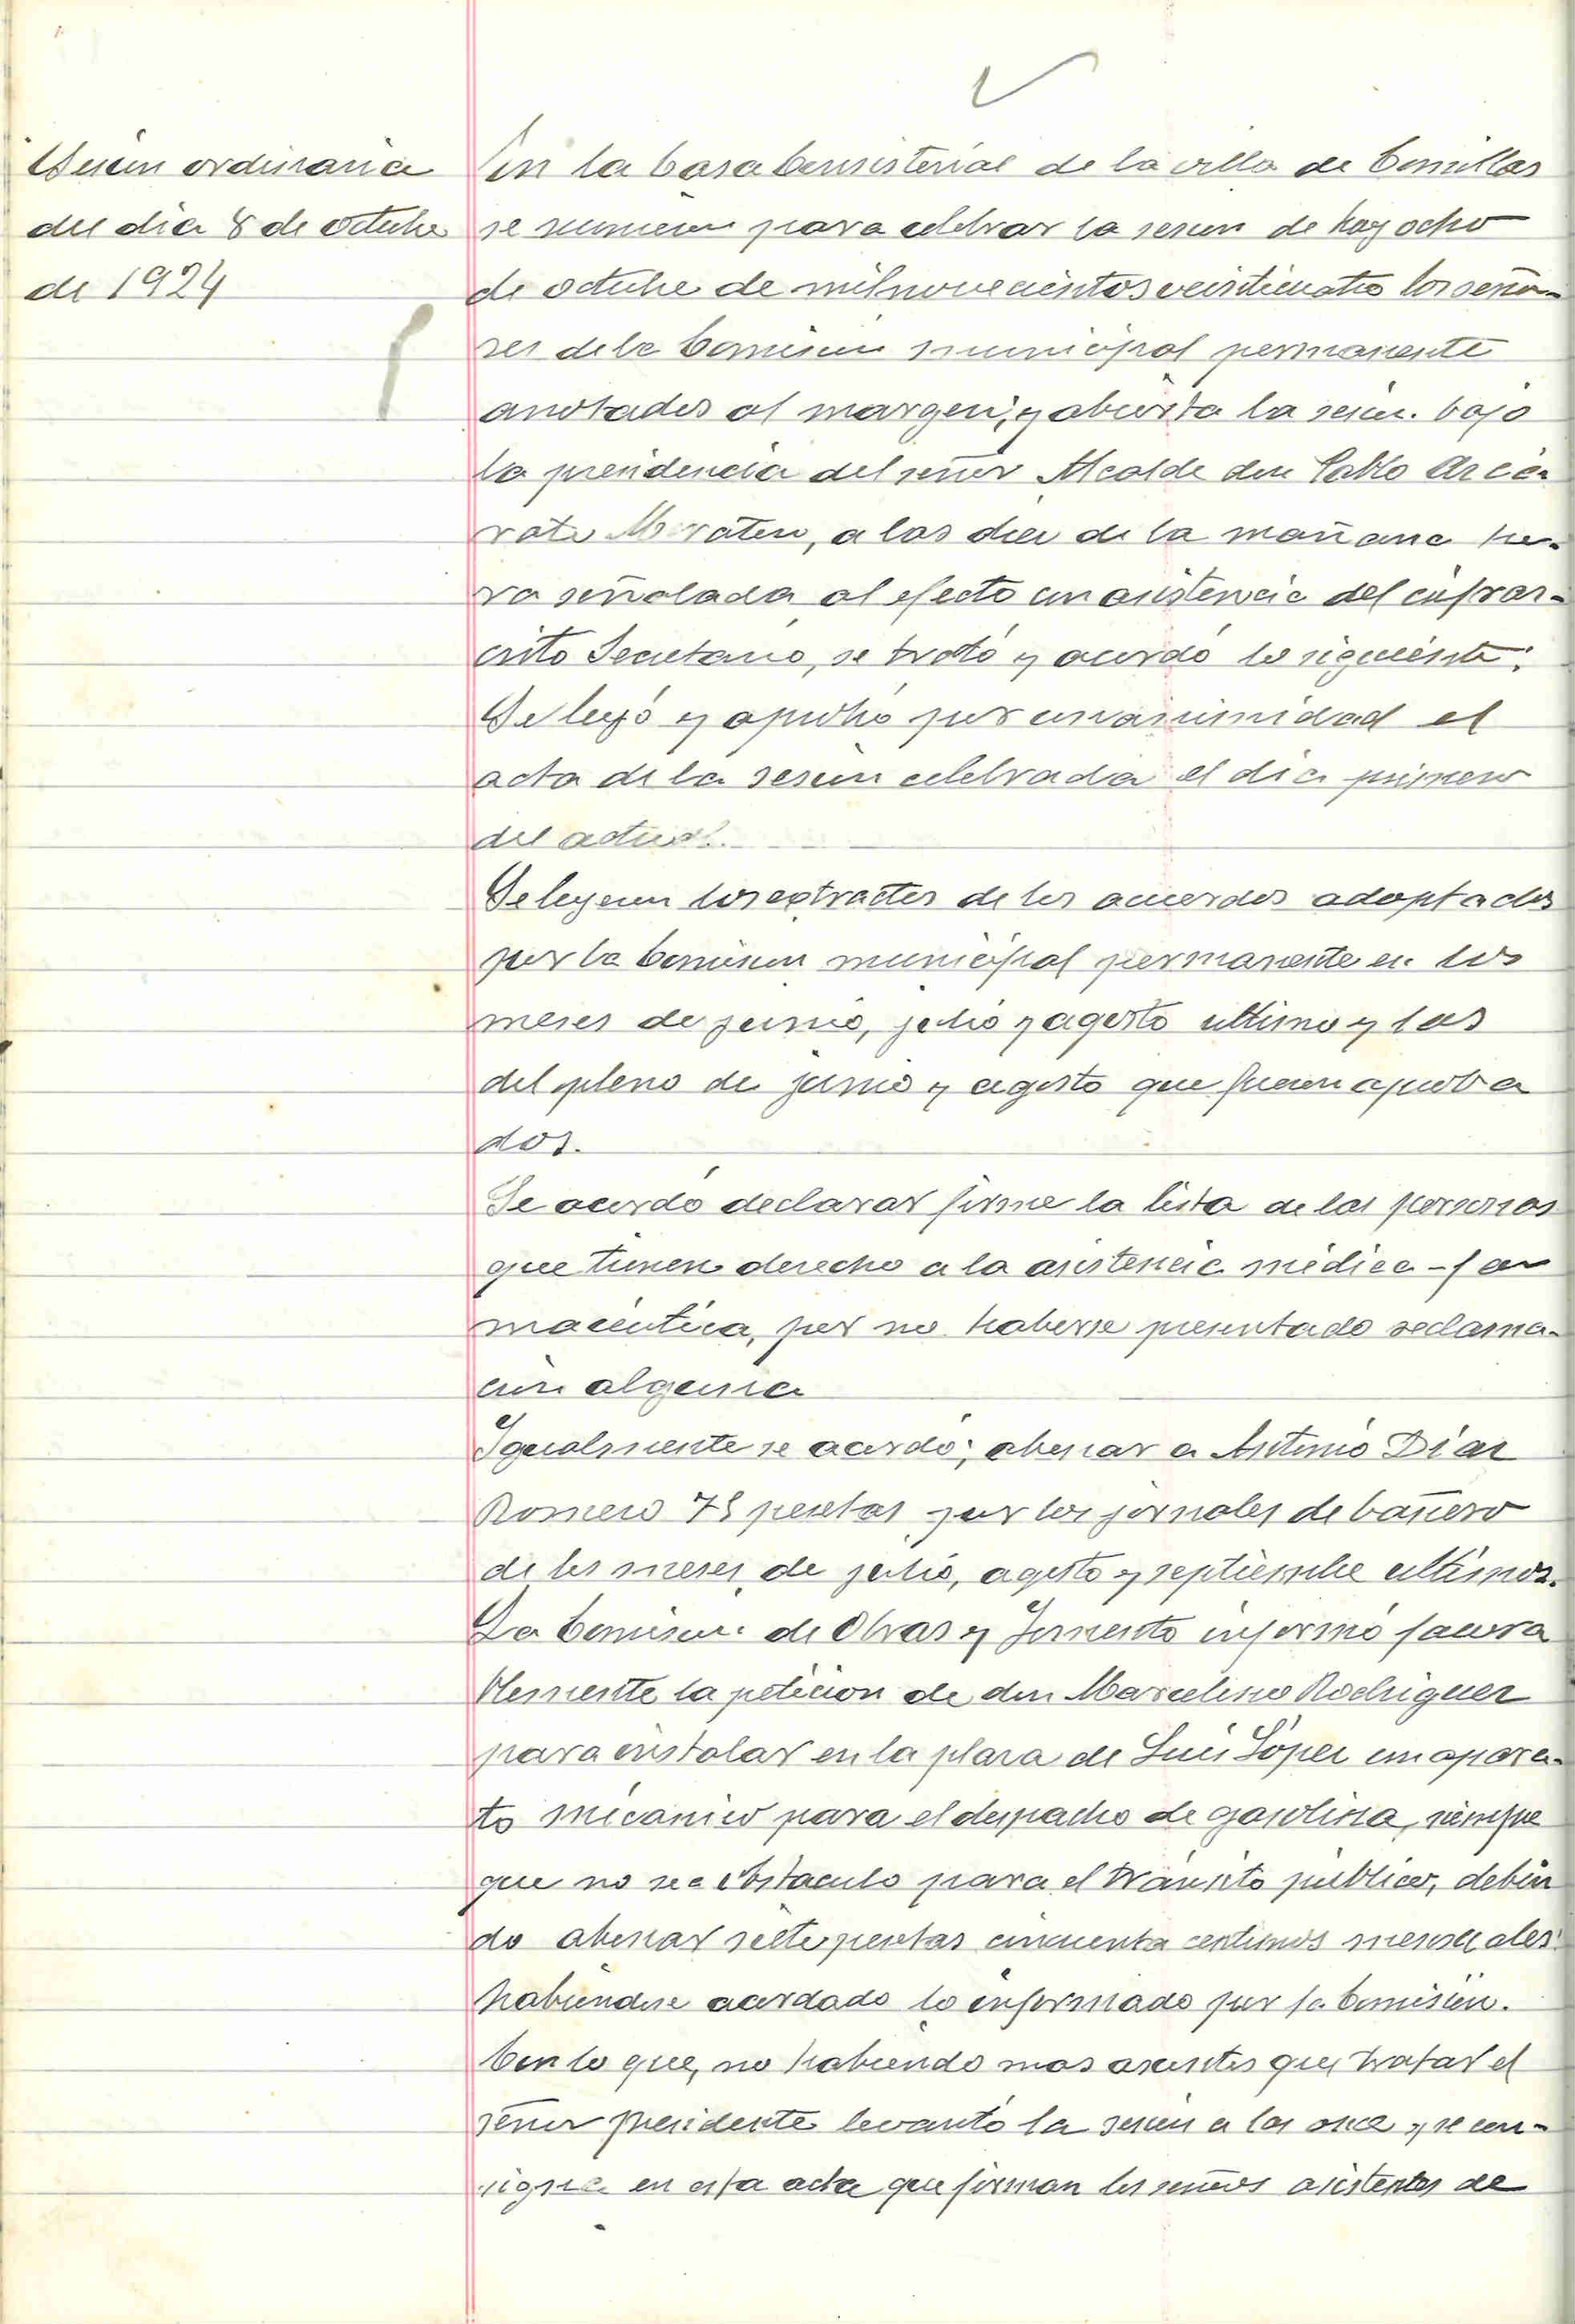 Sesión ordinaria
del dia 8 de octubre
de 1924
En la Casa Consistorial de la villa de Comillas
se reunieron para celebrar la sesion de hoy ocho
de octubre de mil novecientos veinticuatro los seño-
res de la Comision municipal permanente
anotados al margen, y abierta la sesion bajo
la presidencia del señor Alcalde don Pablo
a las diez de la mañana ho-
ra señalada al efecto con asistencia del infras-
crito Secretario, se trató y acordó lo siguiente:
Se leyó y aprobó por unanimidad el
acta de la sesion celebrada el dia primero
del actual.
Se leyeron los extractos de los acuerdos adoptados
por la Comision municipal permanente en los
meses de junio, julio y agosto ultimo y los
del pleno de junio y agosto que fueron aproba
dos.
Se acordó declarar firme la lista de las personas
que tienen derecho a la asistencia médica-far
maceutica, por no haberse presentado reclama-
cion alguna
Igualmente se acordó; abonar a Antonio Díaz
Romero 75 pesetas por los jornales de bañero
de los meses de julio, agosto y septiembre ultimos.
La Comision de Obras y Fomento informó favora
blemente la peticion de don Marcelino Rodriguez
para instalar en la plaza de Luis López un apara-
to mécanico para el despacho de gasolina, siempre
que no sea obstaculo para el tránsito público, debien
do abonar siete pesetas cincuenta centimos mensuales:
habiendose acordado lo informado por la Comisión.
Con lo que, no habiendo mas asuntos que tratar el
señor presidente levantó la sesion a las once y se con-
signa en esta acta que firman los señores asistentes de